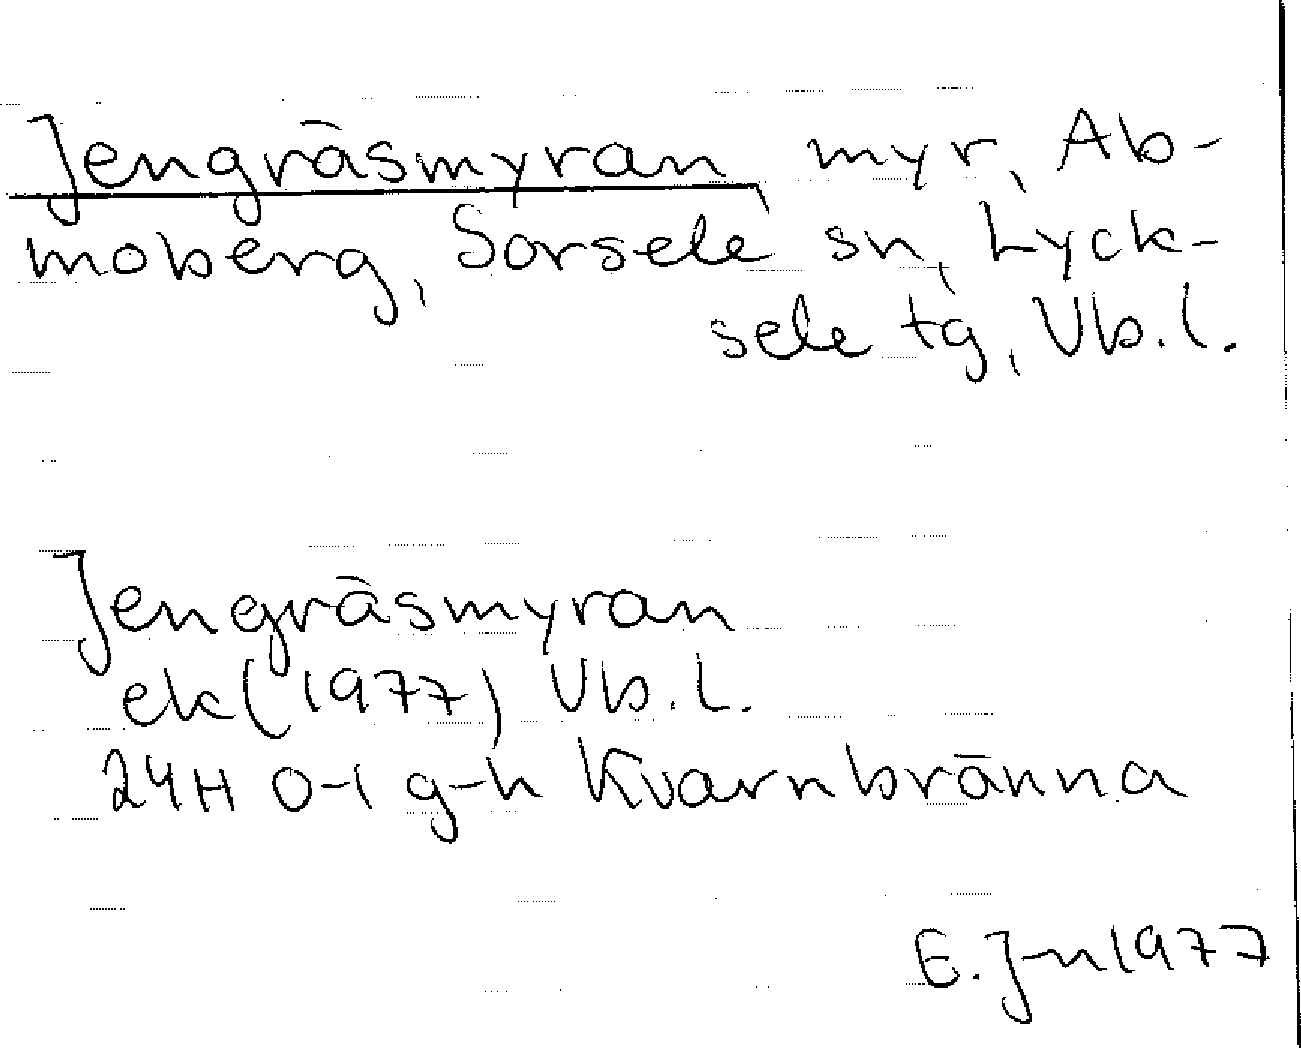 Jengräsmyran myr, Ab-
moberg, Sorsele sn, Lyck-
sele tg, Vb.l.
Jengräsmyran
ek(1977) Vb.l.
24H 0-1 g-h Kvarnbränna
E.J-n 1977